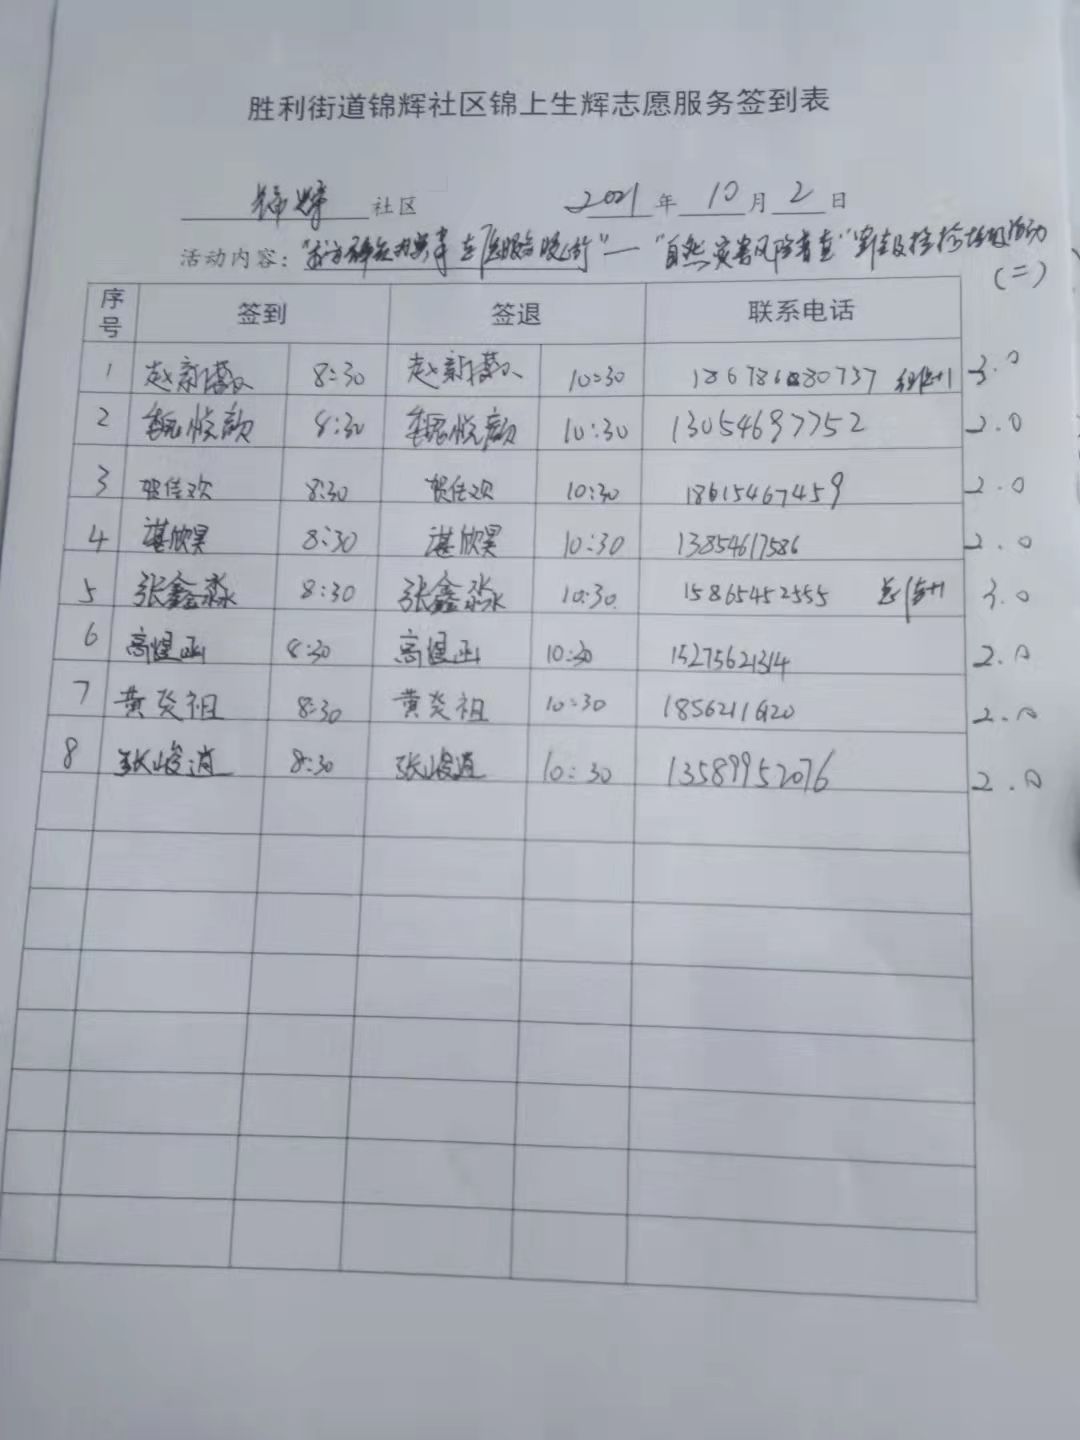 胜利街道锦辉社区锦上生辉志愿服务签到表
锦辉 社区 2021 年 10 月 2 日
活动内容：“我为群众办实事 志愿服务暖心行”—“自然灾害风险普查” 活动
(二)
序号 签到 签退 联系电话
1 赵新 8:30 赵新 10:30 3.0
2 魏悦歆 8:30 魏悦歆 10:30 13054697752 2.0
3 贺佳欢 8:30 贺佳欢 10:30 18615467459 2.0
4 谌欣昊 8:30 谌欣昊 10:30 13854617586 2.0
5 张鑫淼 8:30 张鑫淼 10:30 15865452555 3.0
6 高煜函 8:30 高煜函 10:30 15275621314 2.0
7 黄炎祖 8:30 黄炎祖 10:30 2.0
8 张峻逍 8:30 张峻逍 10:30 13589952076 2.0